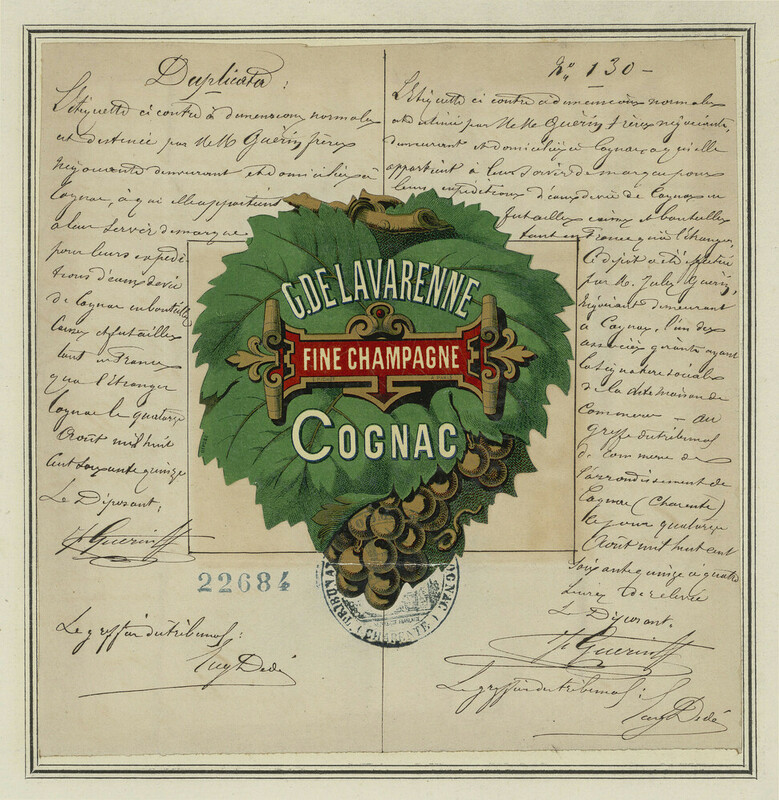 Duplicata :
L'étiquette ci contre à dimensions normales
est destinée par M.M. Guérin frères
négociants demeurant et domiciliés à
Cognac, à qui elle appartient
à leur servir de marque
pour leurs expédi
tions d'eaux de vie
de Cognac en bouteilles
Caisses et futailles
tant en France
qu'à l'Étranger
Cognac le quatorze
Août mil huit
cent soixante quinze
Le Déposant,
Guérin
Le greffier du tribunal :
Eug Dedé
G. DE LAVARENNE
FINE CHAMPAGNE
COGNAC
22684
TRIBUNAL COGNAC
(CHARENTE)
No 130 -
L'Etiquette ci contre à dimensions normales
est destinée par M.M. Guérin frères négociants,
demeurant et domiciliés à Cognac, à qui elle
appartient à leur servir de marque pour
leurs expéditions d'eaux de vie de Cognac en
futailles caisses et bouteilles
tant en France qu'à l'étranger,
Ce dépôt a été effectué
par M. Jules Guérin,
négociant demeurant
à Cognac, l'un des
associés gérants ayant
la signature sociale
de la dite maison de
Commerce - au
greffe du tribunal
de commerce de
l'arrondissement de
Cognac (Charente)
le jour quatorze
Août mil huit cent
soixante quinze à quatre
heures de relevée
Le Déposant.
Guérin
Le greffier du tribunal :
Eug Dedé